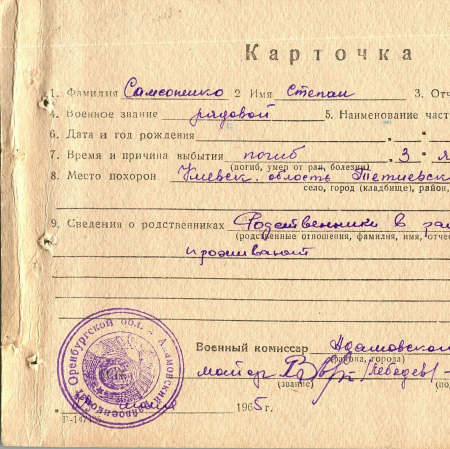 Карточка
1. Фамилия Самсоненко 2 Имя Степан 3. Отч
4. Военное звание рядовой 5. Наименование част
6. Дата и год рождения "
7. Время и причина выбытия погиб 3 "
(погиб, умер от ран, болезни)
8. Место похорон Киевск. область Тетиевск
село, город (кладбище), район,
9. Сведения о родственниках Родственники в
(родственные отношения, фамилия, имя, отчес
проживают
Военный комиссар Адамовского
(района, города)
майор /Лебедев/
(звание) (по
Оренбургской обл.
196 5 г.